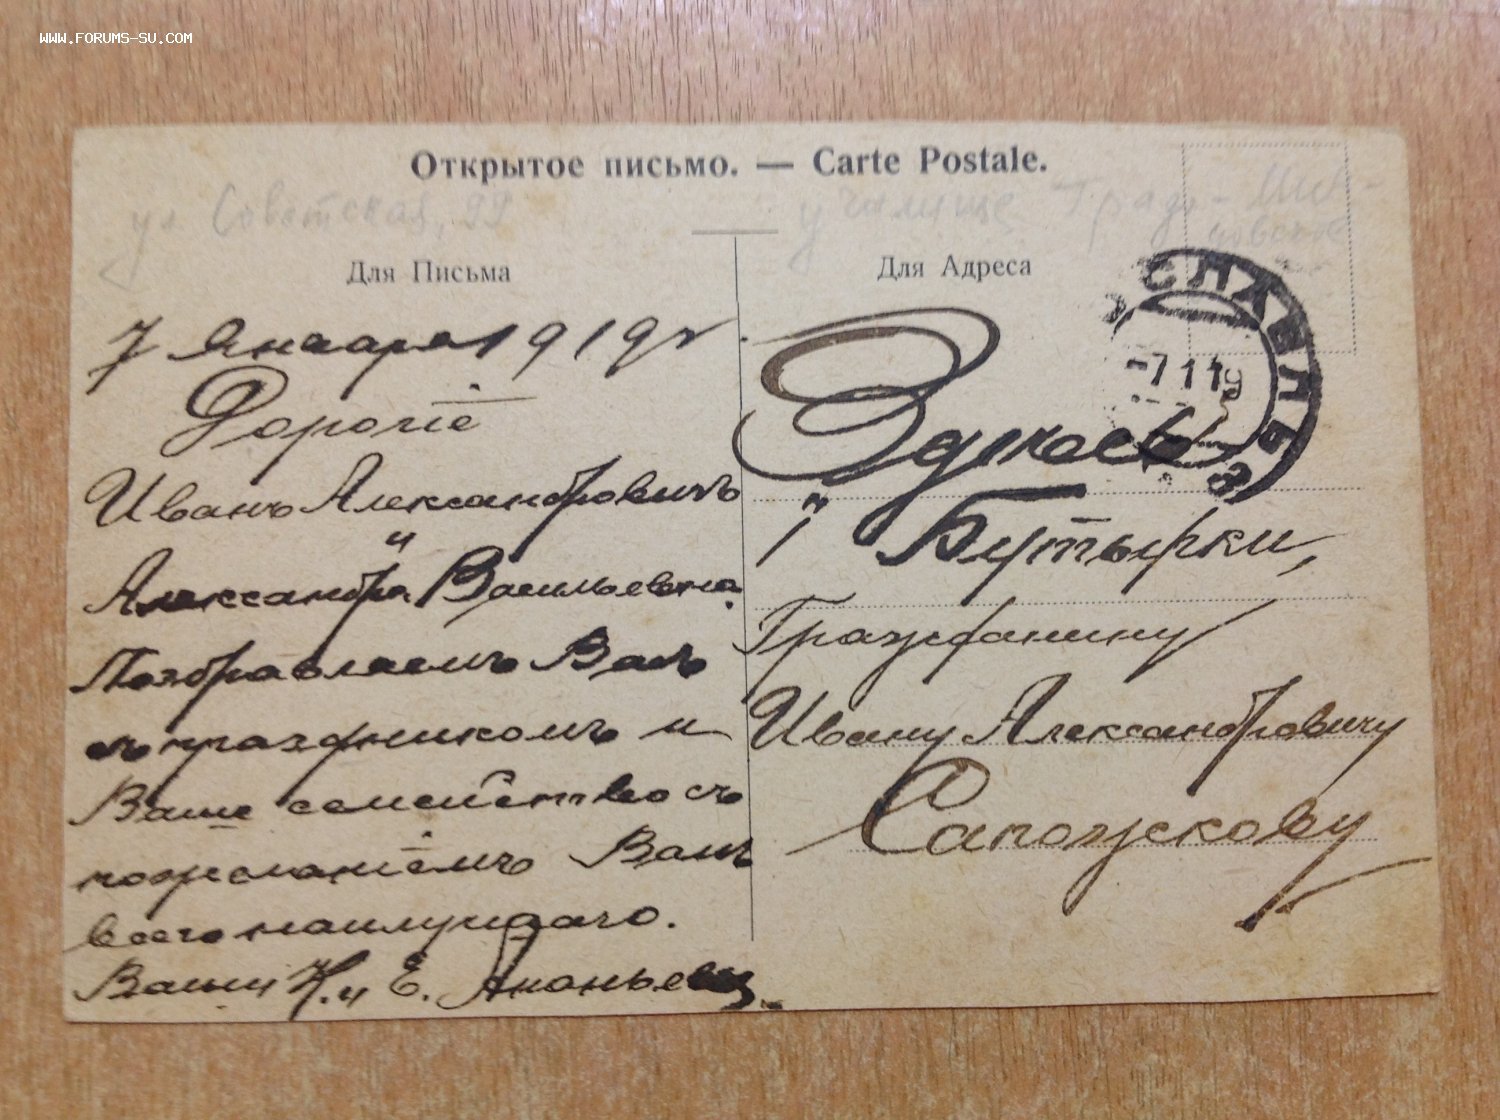 WWW.FORUMS-SU.COM
Открытое письмо. — Carte Postale.
ул Советская, 99
училище Град-
Для Письма
Для Адреса
7 Января 1919 г.
Дорогiе
Иванъ Александровичъ
и
Александра Васильевна.
Поздравляемъ Васъ
съ праздникомъ и
Ваше семейство съ
пожеланiемъ Вамъ
всего наилучшаго.
Ваши Н. и Е. Ананьевы.
СЛАВЛЬ
-7 1 1
Здѣсь
Бутырки,
Гражданину
Ивану Александровичу
Сапожскову